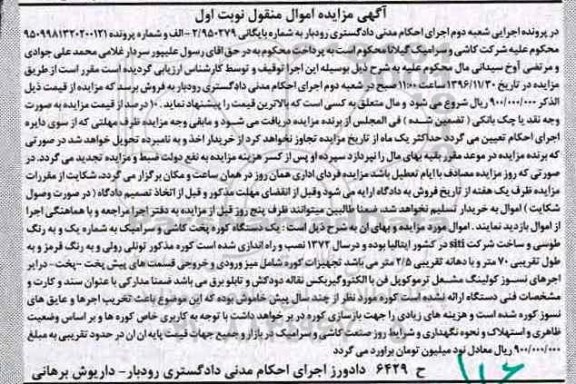 آگهی مزایده اموال منقول نوبت اول
در پرونده اجرایی شعبه دوم اجرای احکام مدنی دادگستری رودبار به شماره بایگانی ۲/۹۵۰۲۷۹ - الف و شماره پرونده ۹۵۰۹۹۸۱۳۲۰۲۰۰۱۲۱
محکوم علیه شرکت کاشی و سرامیک گیلانا محکوم است به پرداخت محکوم به در حق اقای رسول علیپور سردار غلامی محمد علی جوادی
و مرتضی آوخ سیدانی مال محکوم علیه به شرح ذیل بوسیله این اجرا توقیف و توسط کارشناس ارزیابی گردیده است مقرر است از طریق
مزایده در تاریخ ۱۳۹۶/۱۱/۳۰ ساعت ۱۱:۰۰ صبح در شعبه دوم اجرای احکام مدنی دادگستری رودبار به فروش برسد که مزایده از قیمت ذیل
الذکر ۹۰۰/۰۰۰/۰۰۰ ریال شروع می شود و مال متعلق به کسی است که بالاترین قیمت را پیشنهاد نماید. ۱۰ درصد از قیمت مزایده به صورت
وجه نقد یا چک بانکی ( تضمین شده ) فی المجلس از برنده مزایده دریافت می شود و مابقی وجه مزایده ظرف مهلتی که از سوی دایره
اجرای احکام تعیین می گردد حداکثر یک ماه از تاریخ مزایده تجاوز نخواهد کرد از خریدار اخذ و به نامبرده تحویل خواهد شد در صورتی
که برنده مزایده در موعد مقرر بقیه بهای مال را نپردازد سپرده او پس از کسر هزینه مزایده به نفع دولت ضبط و مزایده تجدید می گردد. در
صورتی که روز مزایده مصادف با ایام تعطیل باشد مزایده فردای اداری همان روز در همان ساعت و مکان برگزار می گردد، شکایت از مقررات
مزایده ظرف یک هفته از تاریخ فروش به دادگاه ارایه می شود وقبل از انقضای مهلت مذکور و قبل از اتخاذ تصمیم دادگاه ( در صورت وصول
شکایت ) اموال به خریدار تسلیم نخواهد شد، ضمنا طالبین میتوانند ظرف پنج روز قبل از مزایده به دفتر اجرا مراجعه و با هماهنگی اجرا
از اموال بازدید نمایند . اموال مورد مزایده و بهای ان به شرح ذیل است : یک دستگاه کوره پخت کاشی و سرامیک به شماره یک و به رنگ
طوسی و ساخت شرکت siti در کشور ایتالیا بوده و درسال ۱۳۷۲ نصب و راه اندازی شده است کوره مذکور تونلی رولی و به رنگ قرمز و به
طول تقریبی ۷۰ متر و با دهانه تقریبی ۲/۵ متر می باشد تجهیزات کوره شامل میز ورودی و خروجی قسمت های پیش پخت -پخت- درایر
اجرهای نسوز کولینگ مشعل ترموکوپل فن با الکتروگیربکس نقاله دودکش و تابلو برق می باشد ضمنا مدارکی با عنوان سند و کارت و
مشخصات فنی دستگاه ارائه نشده است کوره مورد نظر از چند سال پیش خاموش بوده که این موضوع باعث تخریب اجرها و عایق های
نسوز کوره شده است و هزینه های زیادی را جهت بازسازی کوره در بر خواهد داشت با توجه به کاربری خاص کوره ها و بر اساس وضعیت
ظاهری و استهلاک و نحوه نگهداری و شرایط روز صنعت کاشی و سرامیک در بازار و منبع جهات قیمت پایه ان ان در حدود تقریبی به مبلغ
۹۰۰/۰۰۰/۰۰۰ ریال معادل نود میلیون تومان براورد می گردد
ح ۶۴۲۹ دادورز اجرای احکام مدنی دادگستری رودبار- داریوش برهانی